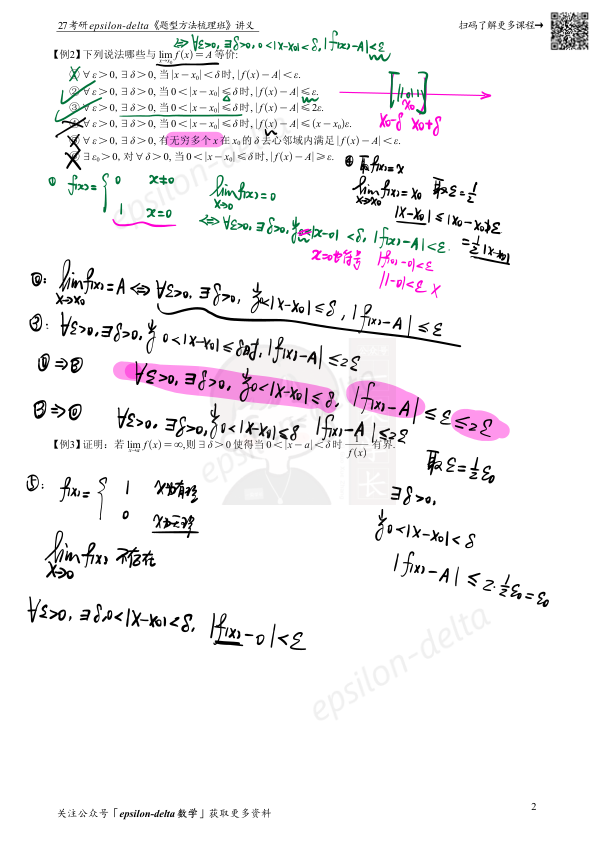 27考研epsilon-delta《题型方法梳理班》讲义
扫码了解更多课程→
⇔ ∀ε>0, ∃δ>0, 0<|x-x₀|<δ, |f(x)-A|<ε
【例2】下列说法哪些与 lim_{x→x₀} f(x)=A 等价:
① ∀ε>0,∃δ>0,当|x-x₀|<δ时,|f(x)-A|<ε.
② ∀ε>0,∃δ>0,当0<|x-x₀|≤δ时,|f(x)-A|≤ε.
③ ∀ε>0,∃δ>0,当0<|x-x₀|≤δ时,|f(x)-A|≤2ε.
④ ∀ε>0,∃δ>0,当0<|x-x₀|≤δ时,|f(x)-A|≤(x-x₀)ε.
⑤ ∀ε>0,∃δ>0,有无穷多个x在x₀的δ去心邻域内满足|f(x)-A|<ε.
⑥ ∃ε₀>0,对∀δ>0,当0<|x-x₀|≤δ时,|f(x)-A|≥ε.
x₀
x₀-δ x₀+δ
① f(x)={ 0 x≠0
1 x=0
lim_{x→0} f(x)=0
⇔ ∀ε>0,∃δ>0,当0<|x-0|<δ,|f(x)-A|<ε.
|f(0)-0|<ε
|1-0|<ε ×
④ 取f(x)=x
lim_{x→x₀} f(x)=x₀ 取ε=1/2
|x-x₀|≤(x-x₀)ε
=1/2|x-x₀|
②: lim_{x→x₀} f(x)=A ⇔ ∀ε>0, ∃δ>0, 当0<|x-x₀|≤δ, |f(x)-A|≤ε
③: ∀ε>0,∃δ>0,当0<|x-x₀|≤δ时,|f(x)-A|≤2ε
②⇒③ ∀ε>0, ∃δ>0, 当0<|x-x₀|≤δ, |f(x)-A|≤ε≤2ε
③⇒② ∀ε>0, ∃δ>0,当0<|x-x₀|≤δ |f(x)-A|≤2ε
【例3】证明:若 lim_{x→a} f(x)=∞,则∃δ>0使得当0<|x-a|<δ时 1/f(x) 有界.
取ε=1/2 ε₀
∃δ>0,
当0<|x-x₀|<δ
|f(x)-A|≤2·1/2ε₀=ε₀
⑤: f(x)={ 1 x为有理
0 x为无理
lim_{x→0} f(x) 不存在
∀ε>0, ∃δ,0<|x-x₀|<δ, |f(x)-0|<ε
epsilon-delta
epsilon-delta
epsilon-delta
关注公众号「epsilon-delta数学」获取更多资料
2